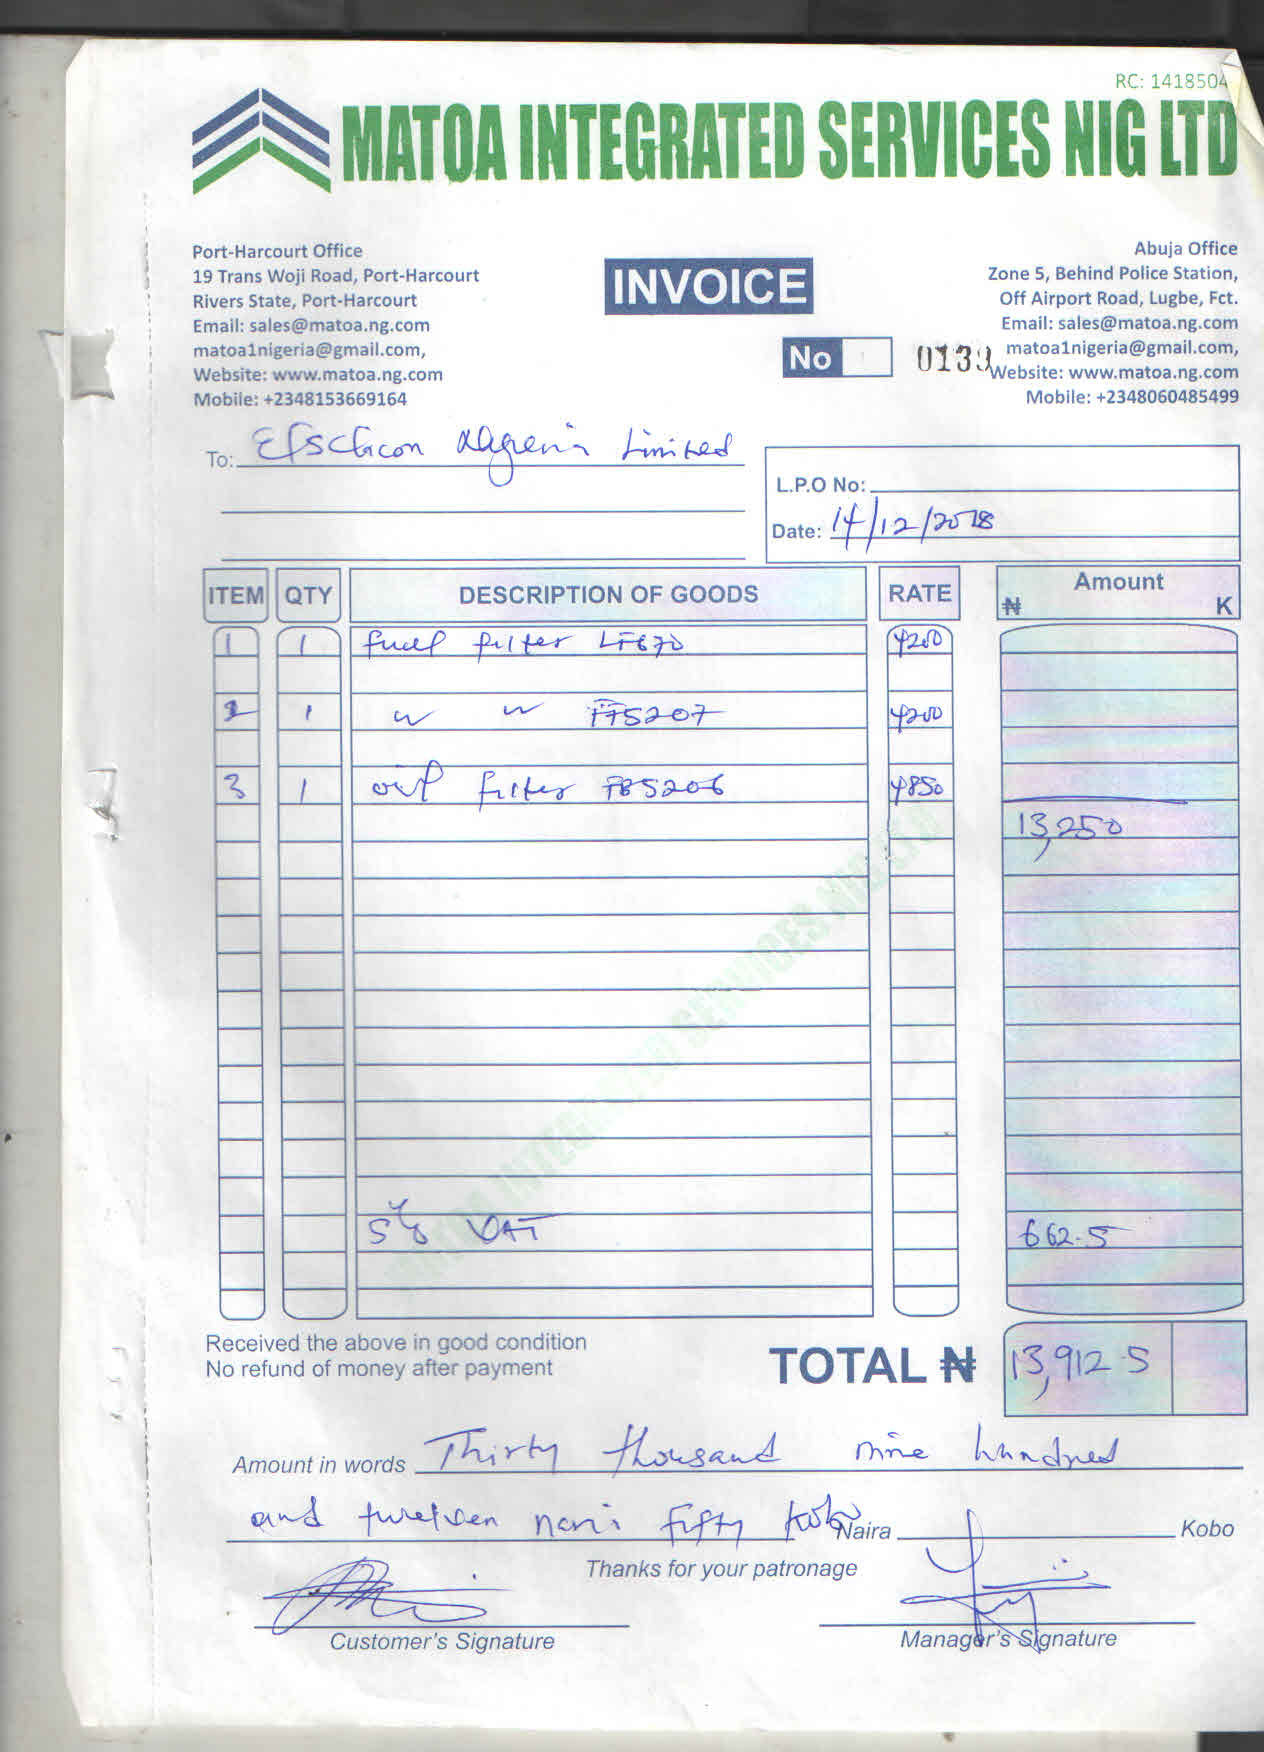 RC: 1418504
MATOA INTEGRATED SERVICES NIG LTD
Port-Harcourt Office
19 Trans Woji Road, Port-Harcourt
Rivers State, Port-Harcourt
Email: sales@matoa.ng.com
matoa1nigeria@gmail.com,
Website: www.matoa.ng.com
Mobile: +2348153669164
INVOICE
No 0139
Abuja Office
Zone 5, Behind Police Station,
Off Airport Road, Lugbe, Fct.
Email: sales@matoa.ng.com
matoa1nigeria@gmail.com,
Website: www.matoa.ng.com
Mobile: +2348060485499
To: Limited
L.P.O No:
Date: 14/12/2018
ITEM QTY DESCRIPTION OF GOODS RATE Amount
₦ K
1 1 fuel filter 4200
2 1 " " 4200
3 1 filter 4850
13,250
5% VAT 662.5
Received the above in good condition
No refund of money after payment
TOTAL ₦ 13,912.5
Amount in words Thirty thousand nine hundred
and fifty kobo Naira Kobo
Thanks for your patronage
Customer's Signature
Manager's Signature
MATOA INTEGRATED SERVICES NIG LTD